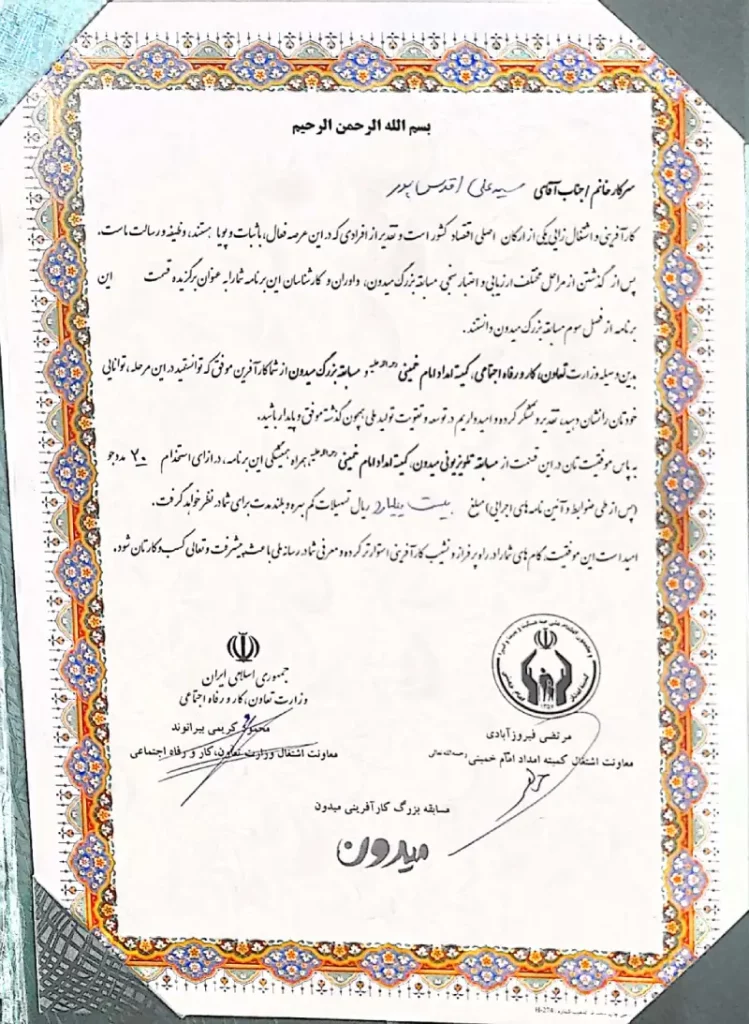 بسم الله الرحمن الرحیم
سرکار خانم / جناب آقای سید علی اقدس پور
کارآفرینی و اشتغال زایی یکی از ارکان اصلی اقتصاد کشور است و تقدیر از افرادی که در این عرصه فعال، با ثبات و پویا هستند، وظیفه و رسالت ماست.
پس از گذشتن از مراحل مختلف ارزیابی و اعتبار سنجی مسابقه بزرگ میدون، داوران و کارشناسان این برنامه شما را به عنوان برگزیده قسمت این
برنامه از فصل سوم مسابقه بزرگ میدون دانستند.
بدین وسیله وزارت تعاون، کار و رفاه اجتماعی، کمیته امداد امام خمینی رحمة الله علیه و مسابقه بزرگ میدون از شما کارآفرین موفق که توانستید در این مرحله، توانایی
خودتان را نشان دهید، تقدیر و تشکر کرده و امیدواریم در توسعه و تقویت تولید ملی همچون گذشته موفق و پایدار باشید.
به پاس موفقیت تان در این قسمت از مسابقه تلویزیونی میدون، کمیته امداد امام خمینی رحمة الله علیه همراه همیشگی این برنامه، در ازای استخدام ۲۰ مددجو
(پس از طی ضوابط و آئین نامه های اجرایی) مبلغ بیست میلیارد ریال تسهیلات کم بهره و بلند مدت برای شما در نظر خواهد گرفت.
امید است این موفقیت، گام های شما را در راه پر فراز و نشیب کارآفرینی استوارتر کرده و معرفی شما در رسانه ملی باعث پیشرفت و تعالی کسب و کارتان شود.
جمهوری اسلامی ایران
وزارت تعاون، کار و رفاه اجتماعی
محمود کریمی بیرانوند
معاونت اشتغال وزارت تعاون، کار و رفاه اجتماعی
مرتضی فیروزآبادی
معاونت اشتغال کمیته امداد امام خمینی رحمة الله علیه
مسابقه بزرگ کارآفرینی میدون
میدون